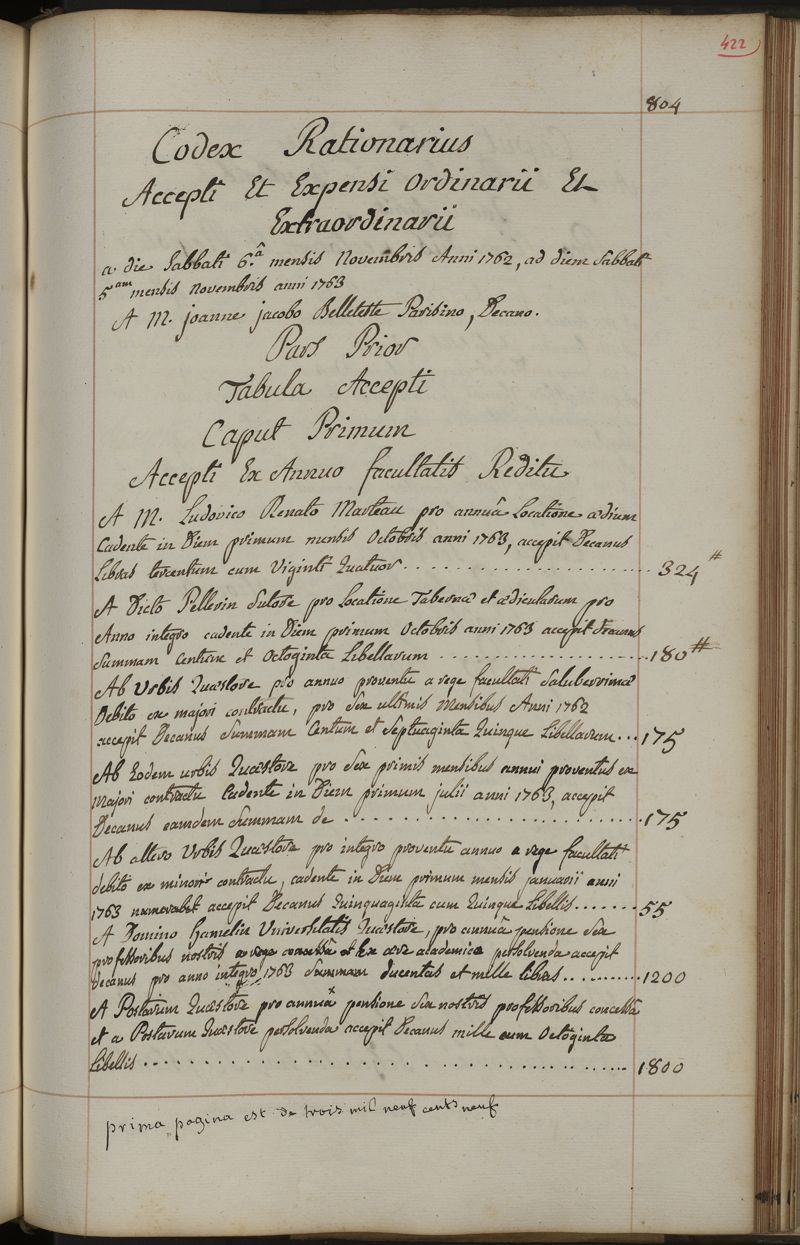 422
804
Codex Rationarius
Accepti Et Expensi Ordinarii Et
Extraordinarii
a die Sabbati 6.â mensis Novembris Anni 1762, ad diem Sabbati
5am mensis novembris anni 1763
A M. joanne jacobo Belleteste Parisino, Decano.
Pars Prior
Tabula Accepti
Caput Primum
Accepti Ex Annuo facultatis Reditu
A M. Ludovico Renato Marteau pro annuâ Locatione ædium
Cadente in Diem primum mensis Octobris anni 1763, accepit Decanus
Libras tercentum cum Viginti Quatuor . . . . . . . . . . . . . . . . . . . . 324#
A Dicto Pellerin Sutore pro Locatione Tabernæ et ædicularum pro
Anno integro cadente in Diem primum Octobris anni 1763 accepit Decanus
Summam Centum et Octoginta Libellarum . . . . . . . . . . . . . . . . . . 180#
Ab Urbis Quæstore pro annuo proventu a rege facultati Saluberrimæ
Debito ex majori contractu, pro Sex ultimis Mensibus Anni 1762
accepit Decanus Summam Centum et Septuaginta Quinque Libellarum . . . 175
Ab Eodem urbis Quæstore pro Sex primis mensibus annui proventus ex
Majori contractu Cadente in Diem primum julii anni 1763, accepit
Decanus eamdem Summam de . . . . . . . . . . . . . . . . . . . . . . . . 175
Ab altero Urbis Quæstore pro integro proventu annuo a rege facultati
debito ex minori contractu, cadente in Diem primum mensis januarii anni
1763 numerabat accepit Decanus Quinquaginta cum Quinque Libellis . . . . . . . 55
A Domino Hamelin Universitatis Quæstore, pro annuâ pensione Sex
professoribus nostris a rege concessâ et Ex ære academico persolvenda accepit
Decanus pro anno integro 1763 Summam ducentas et mille libras . . . . . . . . . . . 1200
A Postarum Quæstore pro annuâ pensione Sex nostris professoribus concessâ
et a Postarum Quæstore persolvenda accepit Decanus mille cum Octoginta
Libellis . . . . . . . . . . . . . . . . . . . . . . . . . . . . . . . . . . . 1800
prima pagina est de trois mil neuf cents neuf